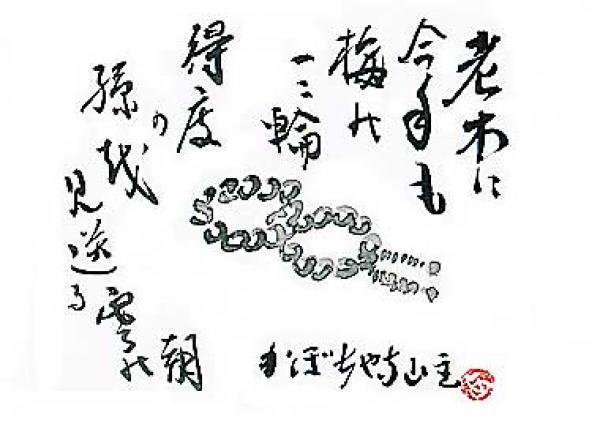 老木に
今年も
梅の
一二輪
得度
の
孫を
見送る
雪の
朝
かぼちゃ寺山主